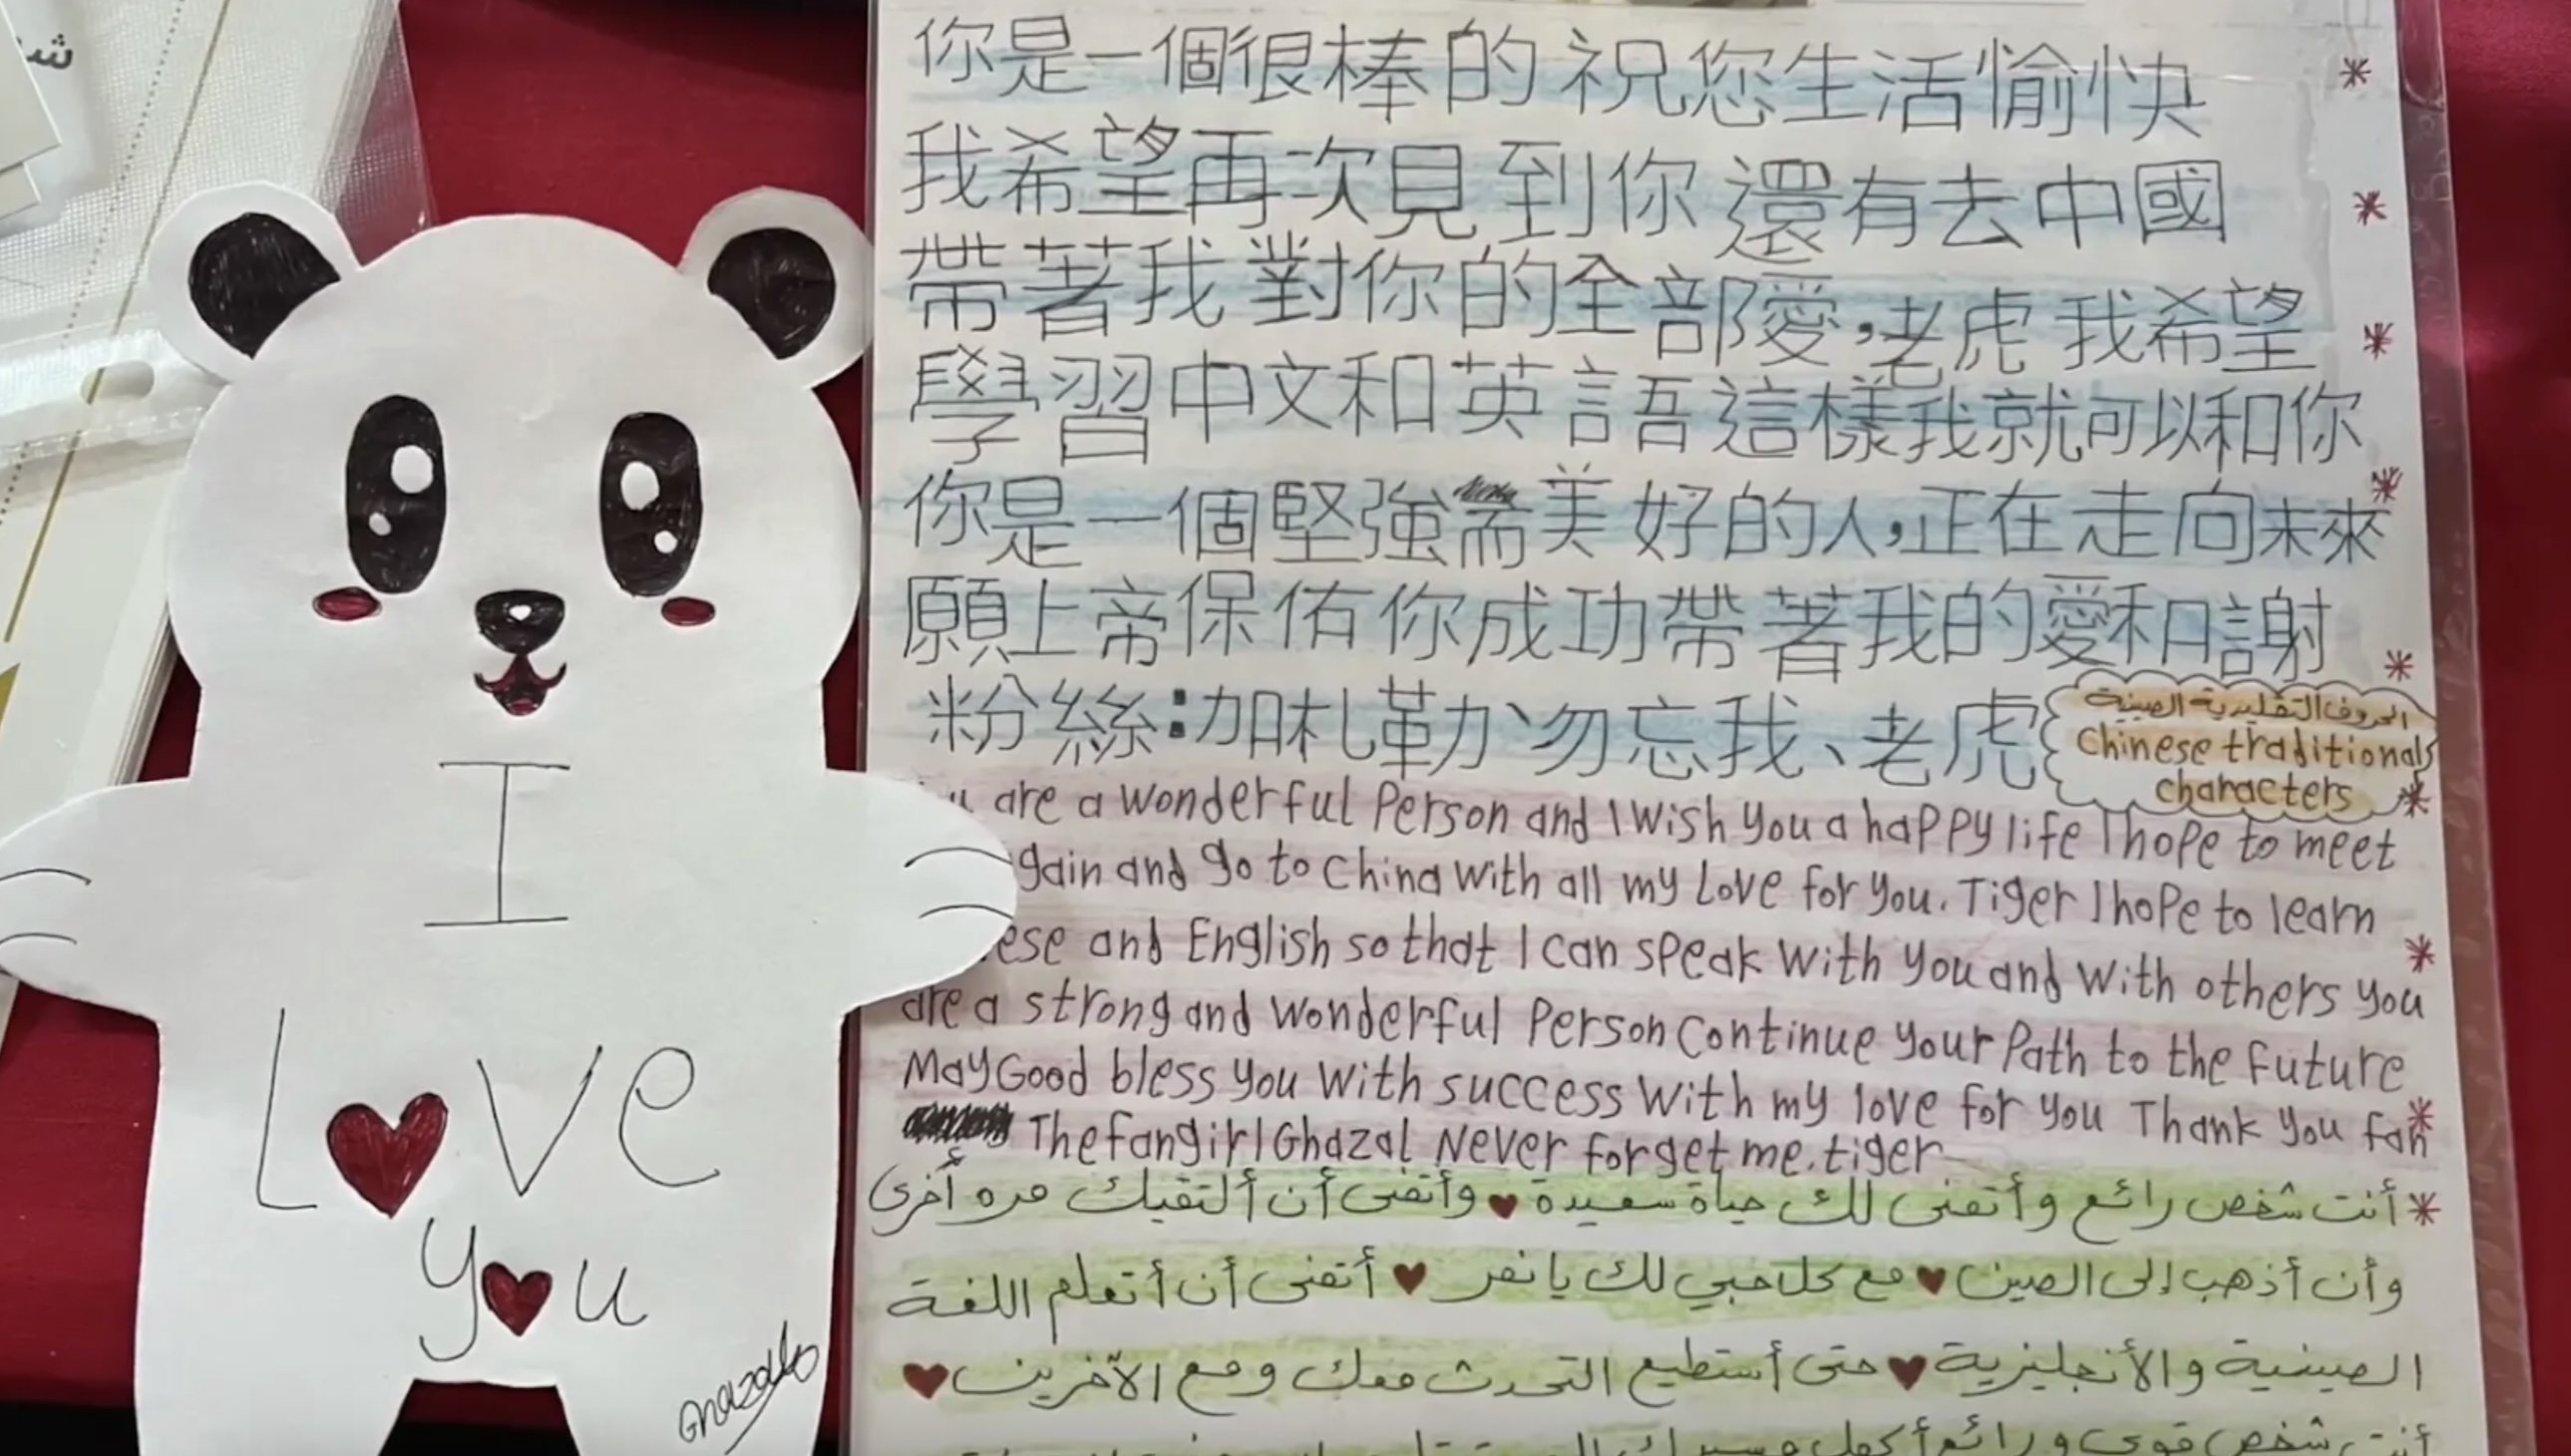 I
Love
you
你是一個很棒的 祝您生活愉快
我希望再次見到你 還有去中國
帶著我對你的全部愛，老虎 我希望
學習中文和英語這樣我就可以和你
你是一個堅強而美好的人，正在走向未來
願上帝保佑你成功帶著我的愛和謝
粉絲：加札勒、勿忘我、老虎
الحروف التقليدية الصينية
Chinese traditional
characters
are a wonderful Person and I Wish you a happy life I hope to meet
gain and go to China With all my Love for you. Tiger I hope to learn
ese and English so that I can speak With you and With others you
are a strong and Wonderful Person Continue your Path to the Future
May Good bless you With success With my love for you Thank you fan
The fangirl Ghazal Never forget me. tiger
أنت شخص رائع وأتمنى لك حياة سعيدة ♥ وأتمنى أن ألتقيك مره أخرى
وأن أذهب إلى الصين ♥ مع كل حبي لك يا نمر ♥ أتمنى أن أتعلم اللغة
الصينية والأنجليزية ♥ حتى أستطيع التحدث معك ومع الآخرين ♥
أنت شخص قوي ورائع أكمل